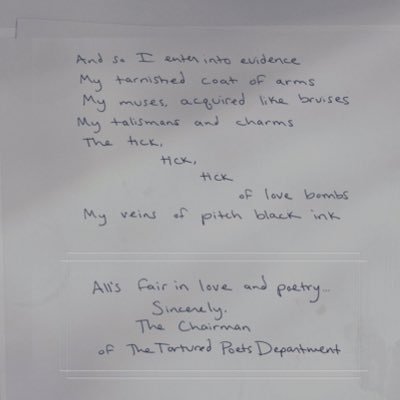 And so I enter into evidence
My tarnished coat of arms
My muses, acquired like bruises
My talismans and charms
The tick,
tick,
tick
of love bombs
My veins of pitch black ink
All's fair in love and poetry...
Sincerely,
The Chairman
of The Tortured Poets Department